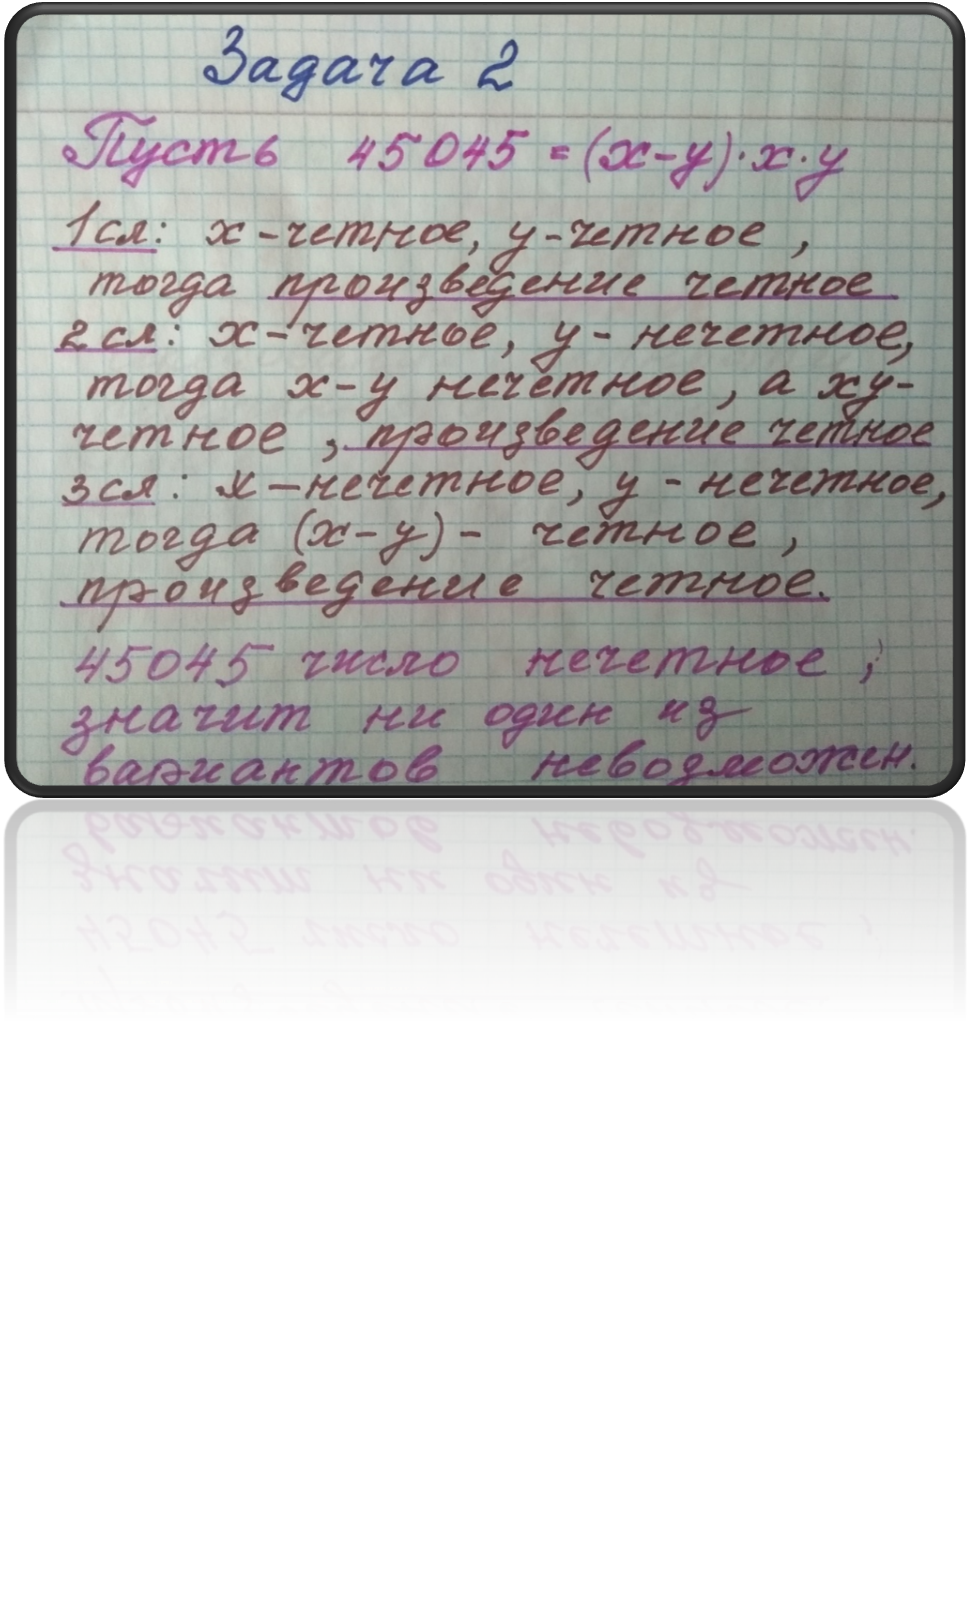 Задача 2
Пусть 45045 = (x-y)·x·y
1сл: x-четное, y-четное,
тогда произведение четное
2 сл: x-четные, y- нечетное,
тогда x-y нечетное, а xy-
четное, произведение четное
3сл: x-нечетное, y - нечетное,
тогда (x-y)- четное,
произведение четное.
45045 число нечетное,
значит ни один из
вариантов невозможен.